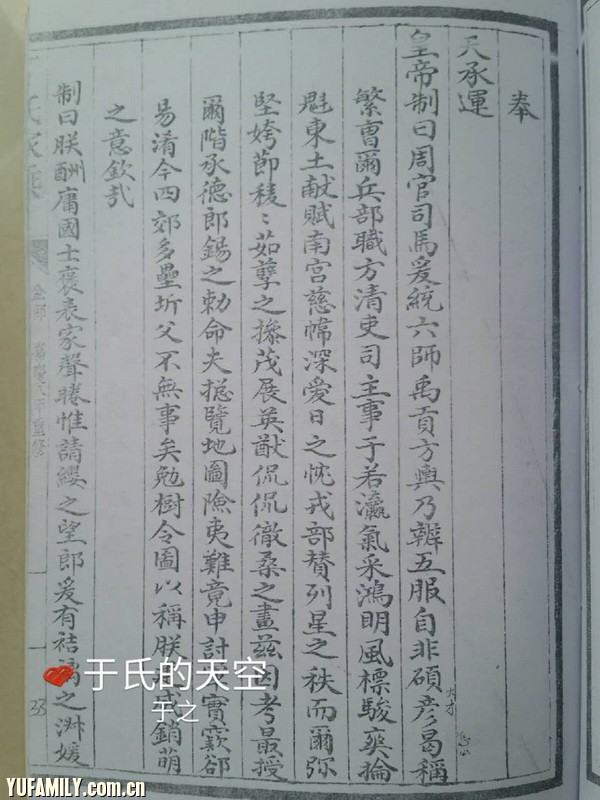 奉
天承運
皇帝制曰周官司馬爰統六師禹貢方輿乃辨五服自非碩彦曷稱
大才
繁曹爾兵部職方清吏司主事于若瀛氣采鴻明風標駿爽掄
魁東土献賦南宫慈幃深愛日之忱戎部賛列星之秩而爾弥
堅姱節稜〻茹孽之摻茂展英猷侃侃徹桑之畫茲因考最授
爾階承德郎錫之勅命夫揔覽地圖險夷難竟申討 實窾郤
易淆今四郊多壘圻父不無事矣勉樹令圖以稱朕 威銷萌
之意欽㢤
制曰朕酬庸國士褒表家聲睠惟請纓之望郎爰有祜 之淋媛
氏家
一
33
于氏的天空
于之
YUFAMILY.com.cn